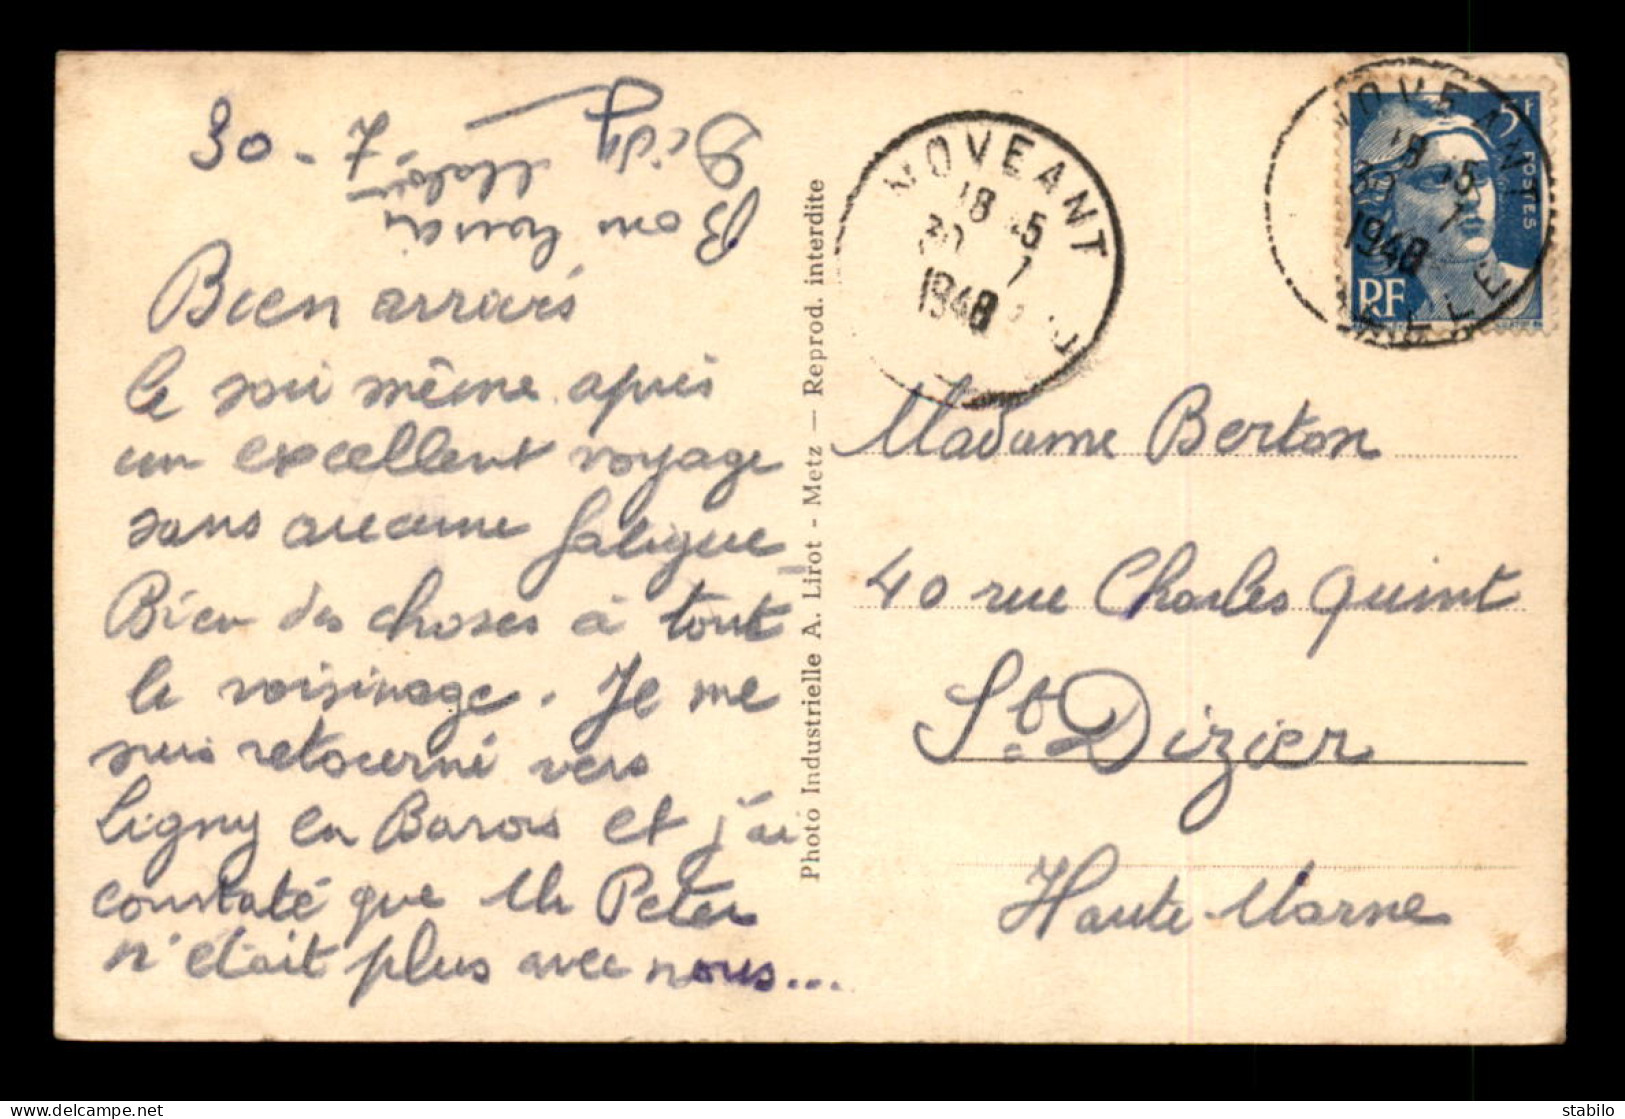 30 - 7
Bien arrivés
le soir même après
un excellent voyage
sans aucune fatigue
Bien des choses à tout
le voisinage. Je me
suis retourné vers
Ligny en Barois et j'ai
constaté que Mr Peter
n'était plus avec nous...
Bons
Photo Industrielle A. Lirot - Metz — Reprod. interdite
NOVEANT
18 15
30 7
1948
NOVEANT
18 15
30 7
1948
MOSELLE
5F
POSTES
RF
Madame Berton
40 rue Charles Quint
St Dizier
Haute-Marne
stabilo